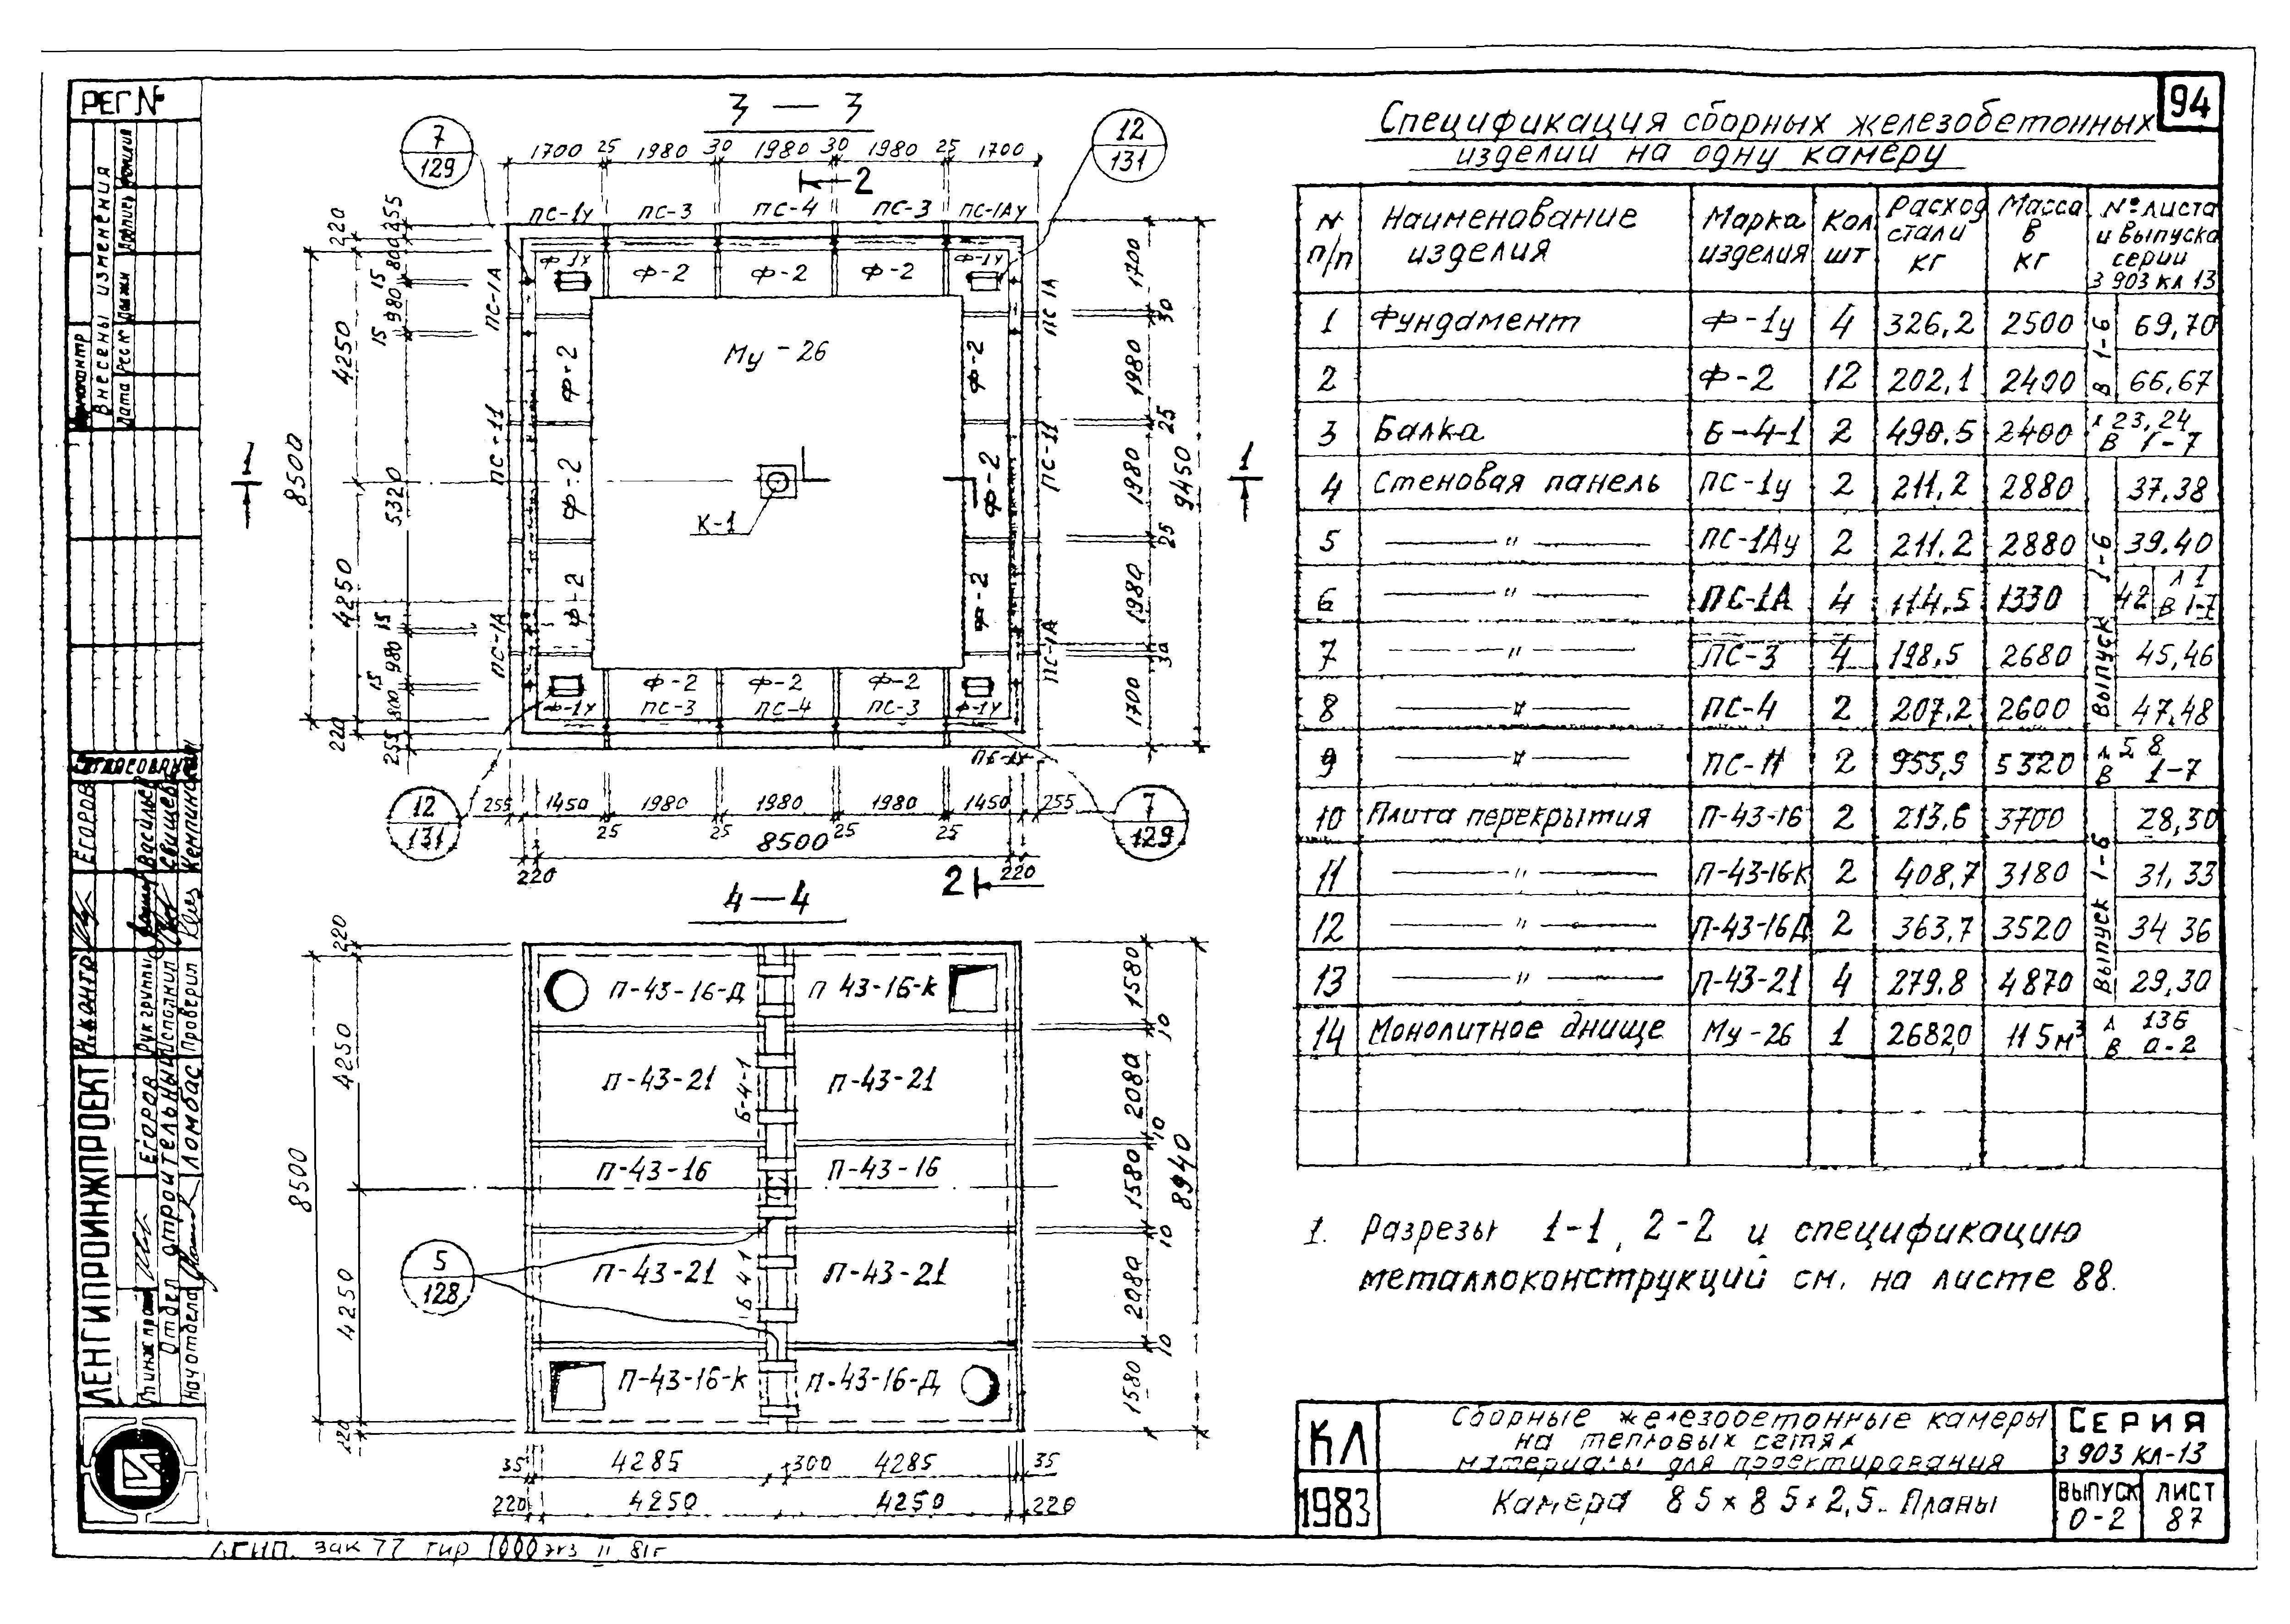 94
РЕГ №
Внесены изменения
3 — 3
7
129
12
131
1700 25 1980 30 1980 30 1980 25 1700
2
ПС-1у ПС-3 ПС-4 ПС-3 ПС-1Ау
Ф-1у Ф-2 Ф-2 Ф-2 Ф-1у
220 255 800 15 980 15
ПС-1А ПС-1А
1700 30 1980 25 1980 25 1980 30 1700
Му-26
4250
8500
5320
9450
Ф-2 Ф-2
ПС-11 ПС-11
Ф-2 Ф-2
1 1
К-1
4250
Ф-2 Ф-2
15 980 15 800 220 255
ПС-1А ПС-1А
Ф-2 Ф-2 Ф-2
Ф-1у ПС-3 ПС-4 ПС-3 Ф-1у
ПС-1у
12
131
7
129
255 1450 1980 1980 1980 1450 255
25 25 25 25
8500
220 220
2
4—4
220
П-43-16-Д П 43-16-К
1580
10
4250
П-43-21 Б-4-1 П-43-21
2080
10
8500
П-43-16 П-43-16
1580
8940
10
5
128
П-43-21 Б 4 1 П-43-21
2080
4250
10
П-43-16-К П-43-16-Д
1580
35 4285 300 4285 35
220 4250 4250 220
Спецификация сборных железобетонных
изделий на одну камеру
N п/п Наименование изделия Марка изделия Кол шт Расход стали кг Масса в кг № листа и выпуска серии 3 903 КЛ 13
1 Фундамент Ф-1у 4 326,2 2500 В 1-6 69,70
2 Ф-2 12 202,1 2400 66,67
3 Балка Б-4-1 2 490.5 2400 л 23,24 В 1-7
4 Стеновая панель ПС-1у 2 211,2 2880 Выпуск 1-6 37,38
5 —"— ПС-1Ау 2 211.2 2880 39.40
6 —"— ПС-1А 4 114,5 1330 42 Л 1 В 1-7
7 —"— ПС-3 4 198,5 2680 45,46
8 —"— ПС-4 2 207,2 2600 47,48
9 —"— ПС-11 2 955,9 5320 л 5,8 В 1-7
10 Плита перекрытия П-43-16 2 213,6 3700 Выпуск 1-6 28,30
11 —"— П-43-16К 2 408,7 3180 31, 33
12 —"— П-43-16Д 2 363,7 3520 34 36
13 —"— П-43-21 4 279.8 4870 29,30
14 Монолитное днище Му-26 1 26820 11 5м³ Л 136 В 0-2
1. Разрезы 1-1, 2-2 и спецификацию
металлоконструкций см. на листе 88.
КЛ
1983
Сборные железобетонные камеры
на тепловых сетях
материалы для проектирования
Камера 8 5 × 8 5 × 2,5. Планы
СЕРИЯ
3 903 КЛ-13
ВЫПУСК
0-2
ЛИСТ
87
ЛЕНГИПРОИНЖПРОЕКТ
Отдел строительный
Нач отдела Ломбас
Егоров
Н. контр Егоров
Рук группы Васильев
Исполнил
Проверил
зак 77 тир 1000 экз II 81г